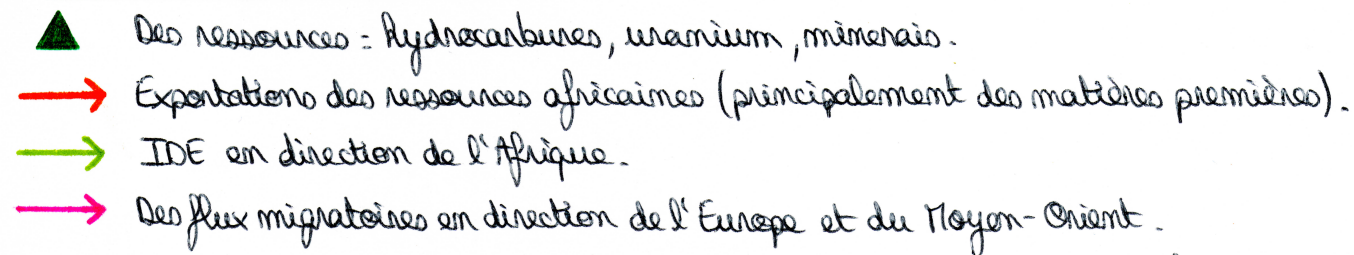 Des ressources = hydrocarbures, uranium, minerais.
Exportations des ressources africaines (principalement des matières premières).
IDE en direction de l'Afrique.
Des flux migratoires en direction de l'Europe et du Moyen-Orient.